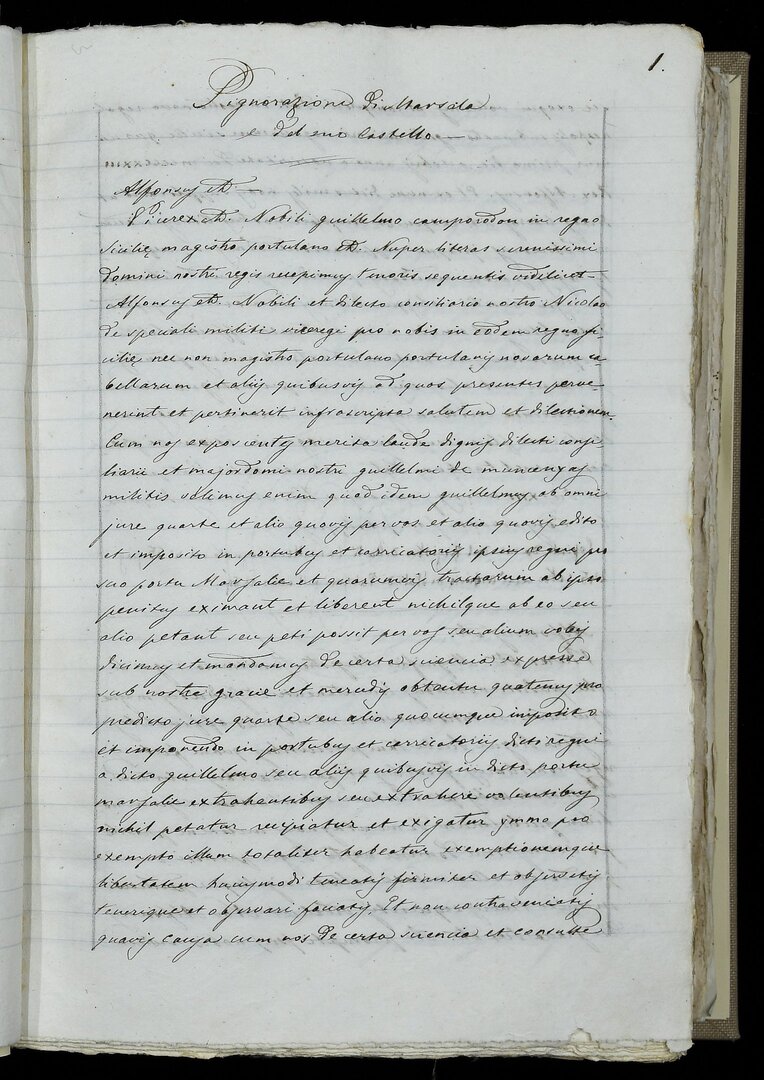 1.
Pignorazione di Marsala
e del suo Castello
Alfonsus etc.
Vicerex etc. Nobili guillelmo camporodon in regno
sicilię magistro portulano etc. Nuper literas serenissimi
domini nostri regis recepimus tenoris sequentis videlicet
Alfonsus etc. Nobili et dilecto consiliario nostro Nicolao
de speciali militi viceregi pro nobis in eodem regno si-
cilię nec non magistro portulano portularijs novarum ca-
bellarum et alijs quibusvis ad quos presentes perve-
nerint et pertinerit infrascripta salutem et dilectionem.
Cum nos exposcentis merita laude dignis dilecti consi-
liarii et majordomi nostri guillelmi de muncenyas
militis volimus enim quod idem guillelmus ab omni
jure quarte et alio quovis per vos et alio quovis edito
et imposito in portubus et carricatorijs ipsius regni pro
suo portu Marsalie et quarumvis tractarum ab ipso
penitus eximant et liberent nichilque ab eo seu
alio petant seu peti possit per vos seu alium vobis
dicimus et mandamus de certa sciencia expresse
sub nostre gracie et mercedis obtentu quatenus pro
predicto jure quarte seu alio quocumque imposito
et imponendo in portubus et carricatoriis dicti regni
a dicto guillelmo seu alijs quibusvis in dicto portu
marsalie extrahentibus seu extrahere volentibus
nichil petatur recipiatur et exigatur ymmo pro
exempto illum totaliter habeatur exemptionemque
libertatem huiusmodi teneatis firmiter et observetis
tenerique et observari faciatis. Et non contraveniatis
quavis causa cum nos de certa sciencia et consulte